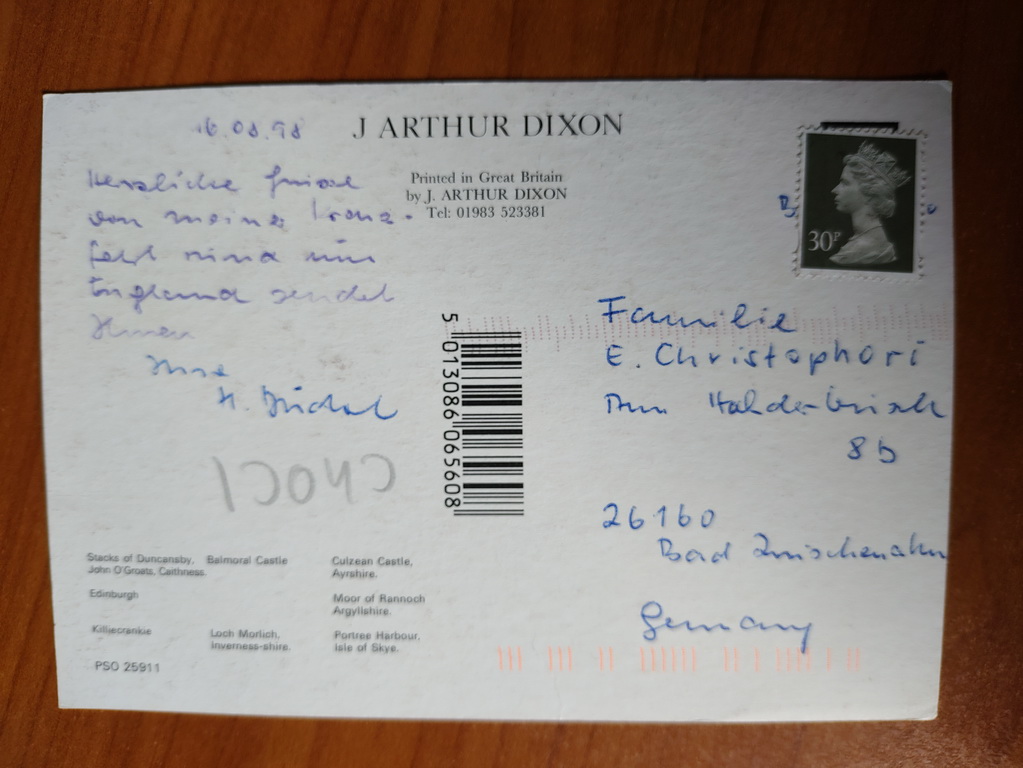 16.08.98
J ARTHUR DIXON
Printed in Great Britain
by J. ARTHUR DIXON
Tel: 01983 523381
30P
Herzliche Grüsse
von meiner
rund um
England sendet
Ihnen
Ihre
H.
5 013086 065608
Familie
E. Christophori
Am
8b
26160
Bad Zwischenahn
Germany
Stacks of Duncansby,
John O'Groats, Caithness.
Balmoral Castle
Culzean Castle,
Ayrshire.
Edinburgh
Moor of Rannoch
Argyllshire.
Killiecrankie
Loch Morlich,
Inverness-shire.
Portree Harbour,
Isle of Skye.
PSO 25911